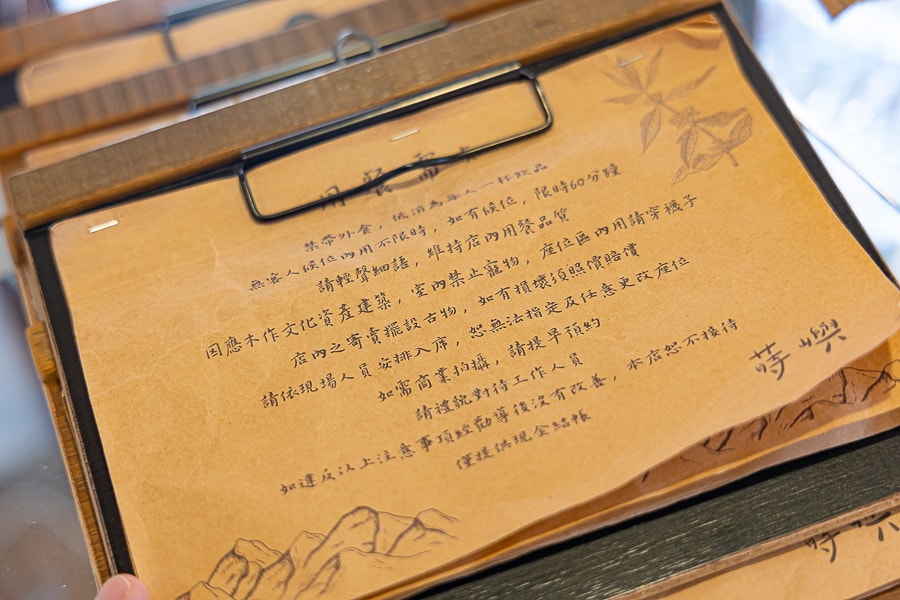 用餐需知
禁帶外食，低消為每人一杯飲品
無客人候位內用不限時，如有候位，限時60分鐘
請輕聲細語，維持店內用餐品質
因應木作文化資產建築，室內禁止寵物，座位區內用請穿襪子
店內之寄賣擺設古物，如有損壞須照價賠償
請依現場人員安排入席，恕無法指定及任意更改座位
如需商業拍攝，請提早預約
請禮貌對待工作人員
如違反以上注意事項經勸導後沒有改善，本店恕不接待
僅提供現金結帳